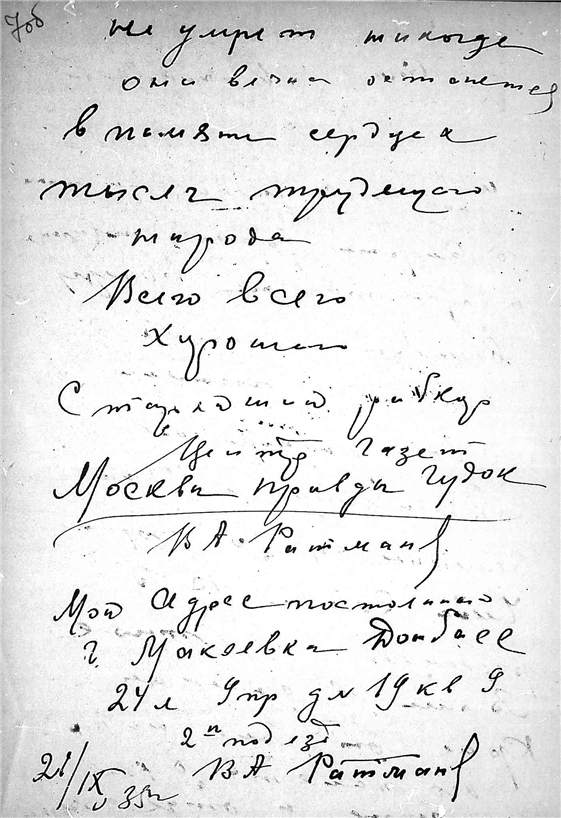 70б
не умрет никогда
они вечна останется
в памяти сердца
тысяч трудещего
народа
Всего всего
хорошего
Старейший рабкор
Центр газет
Москва правда Гудок
В А Ратман
Мой Адрес постоянно
г. Макеевка Донбасс
24 л 9 пр дм 19 кв 9
2п подезд
В А Ратман